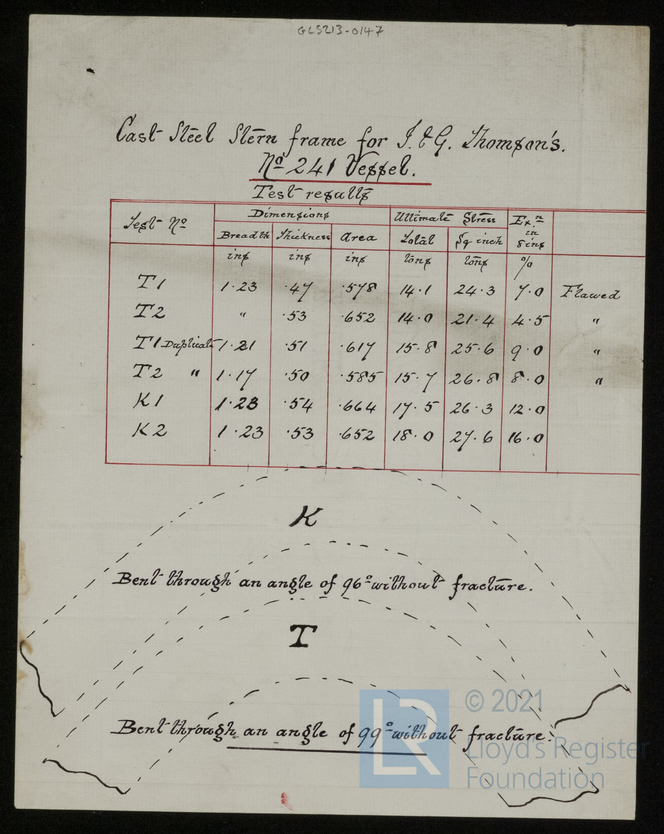 GLS213-0147
Cast Steel Stern frame for J. & G. Thomson's.
No 241 Vessel.
Test results
Test No Dimensions Ultimate Stress Exn in 8 ins
Breadth Thickness Area Total Sq inch
ins ins ins tons tons %
T1 1.23 .47 .578 14.1 24.3 7.0 Flawed
T2 " .53 .652 14.0 21.4 4.5 "
T1 Duplicate 1.21 .51 .617 15.8 25.6 9.0 "
T2 " 1.17 .50 .585 15.7 26.8 8.0 "
K1 1.23 .54 .664 17.5 26.3 12.0
K2 1.23 .53 .652 18.0 27.6 16.0
K
Bent through an angle of 96° without fracture.
T
Bent through an angle of 99° without fracture.
© 2021
LR Lloyd's Register
Foundation